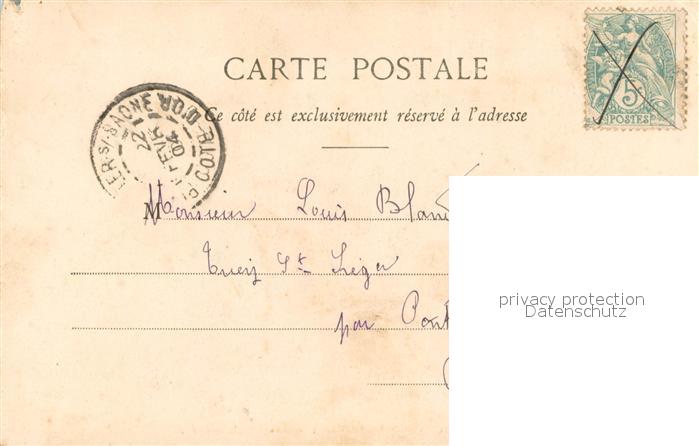 CARTE POSTALE
Ce côté est exclusivement réservé à l'adresse
5c
POSTES
LER-S/-SAONE COTE-D'OR
22
FEVR
04
Monsieur Louis
St Léger
par Pont
privacy protection
Datenschutz